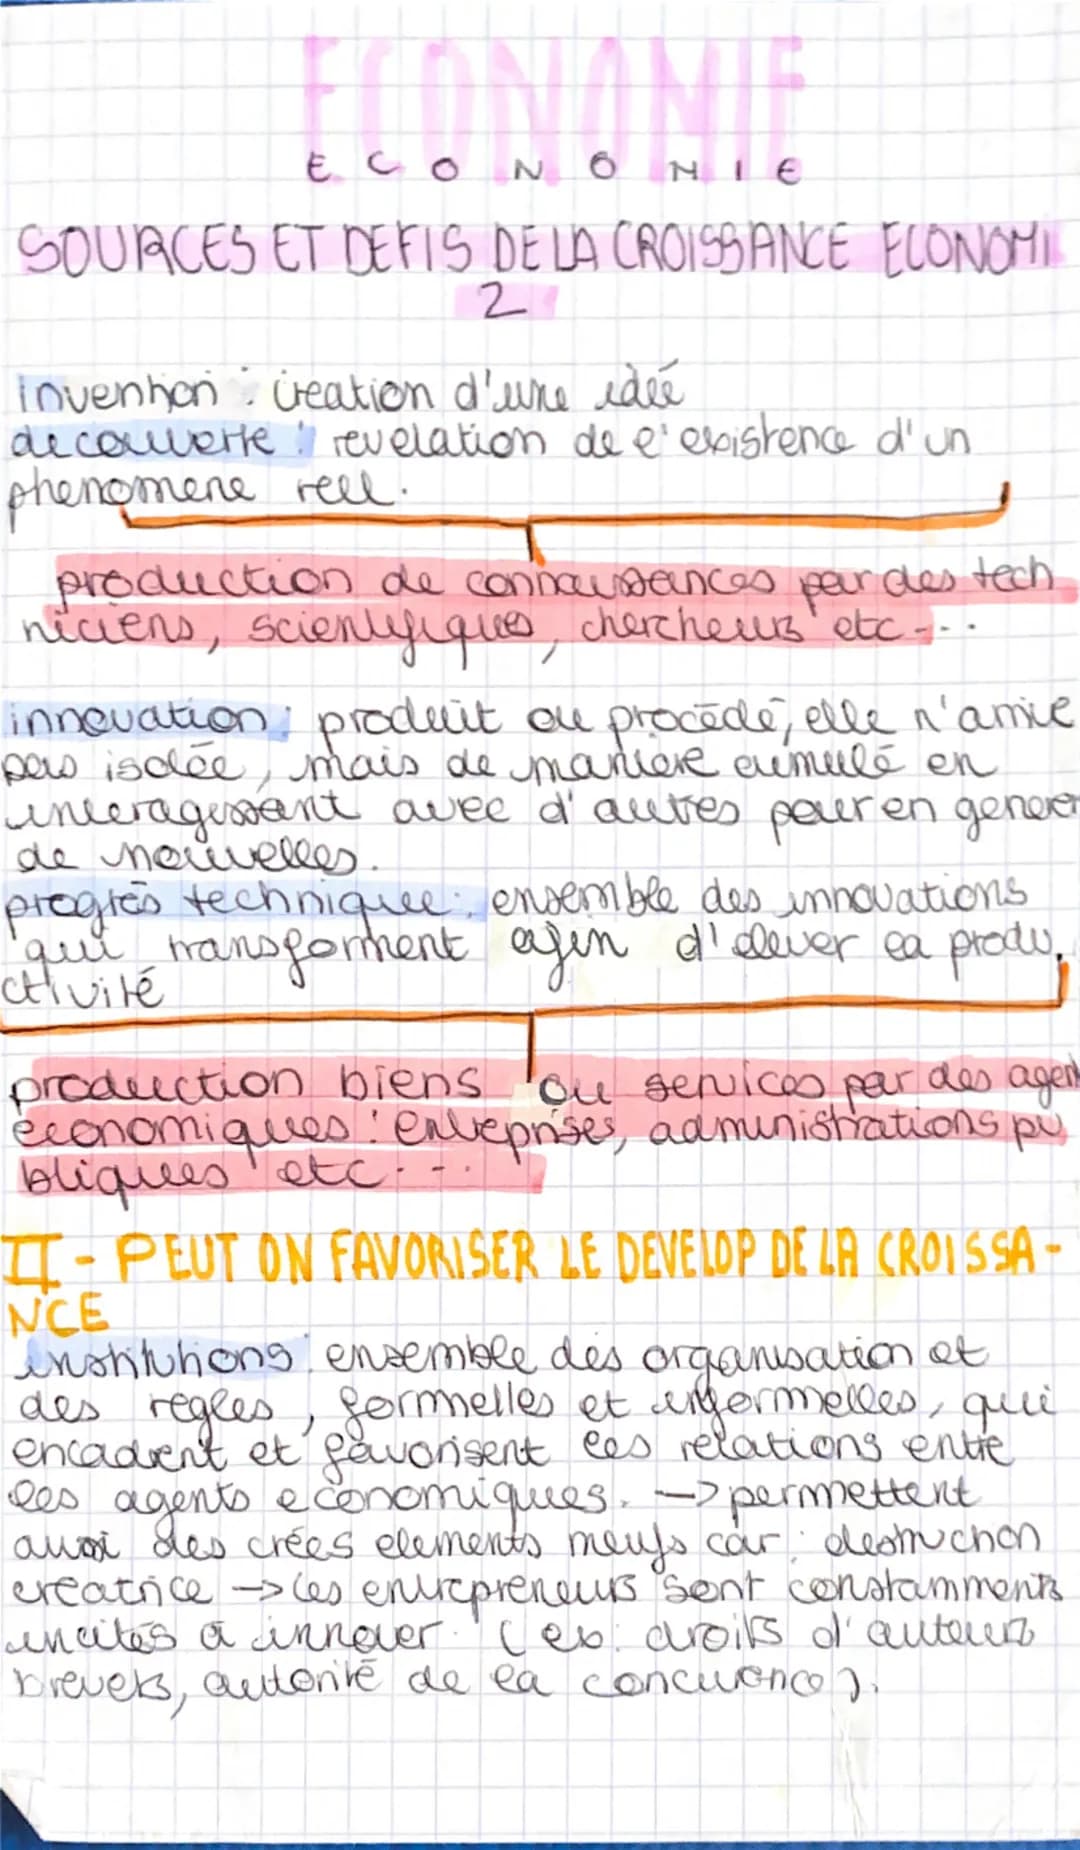 ECONOMIE
ECONOMIE
SOURCES ET DEFIS DE LA CROISSANCE ECONOMI
2
invention : creation d'une idée
decouverte : revelation de l'existence d'un
phenomene reel.
production de connaissances par des tech
niciens, scientifiques, chercheurs etc ...
innovation : produit ou procédé, elle n'arrive
pas isolée, mais de manière cumulé en
interagissant avec d'autres pour en generer
de nouvelles.
progrès technique : ensemble des innovations
qui transforment afin d'elever la produ
ctivité
production biens ou services par des agent
economiques : entreprises, administrations pu
bliques etc ...
II - PEUT ON FAVORISER LE DEVELOP DE LA CROISSA-
NCE
institutions : ensemble des organisation et
des regles, formelles et informelles, qui
encadrent et favorisent les relations entre
les agents economiques. -> permettent
aussi des crées elements neufs car : destruction
creatrice -> les entrepreneurs sont constamments
incités à innover. (ex: droits d'auteurs
brevets, autorité de la concurence).